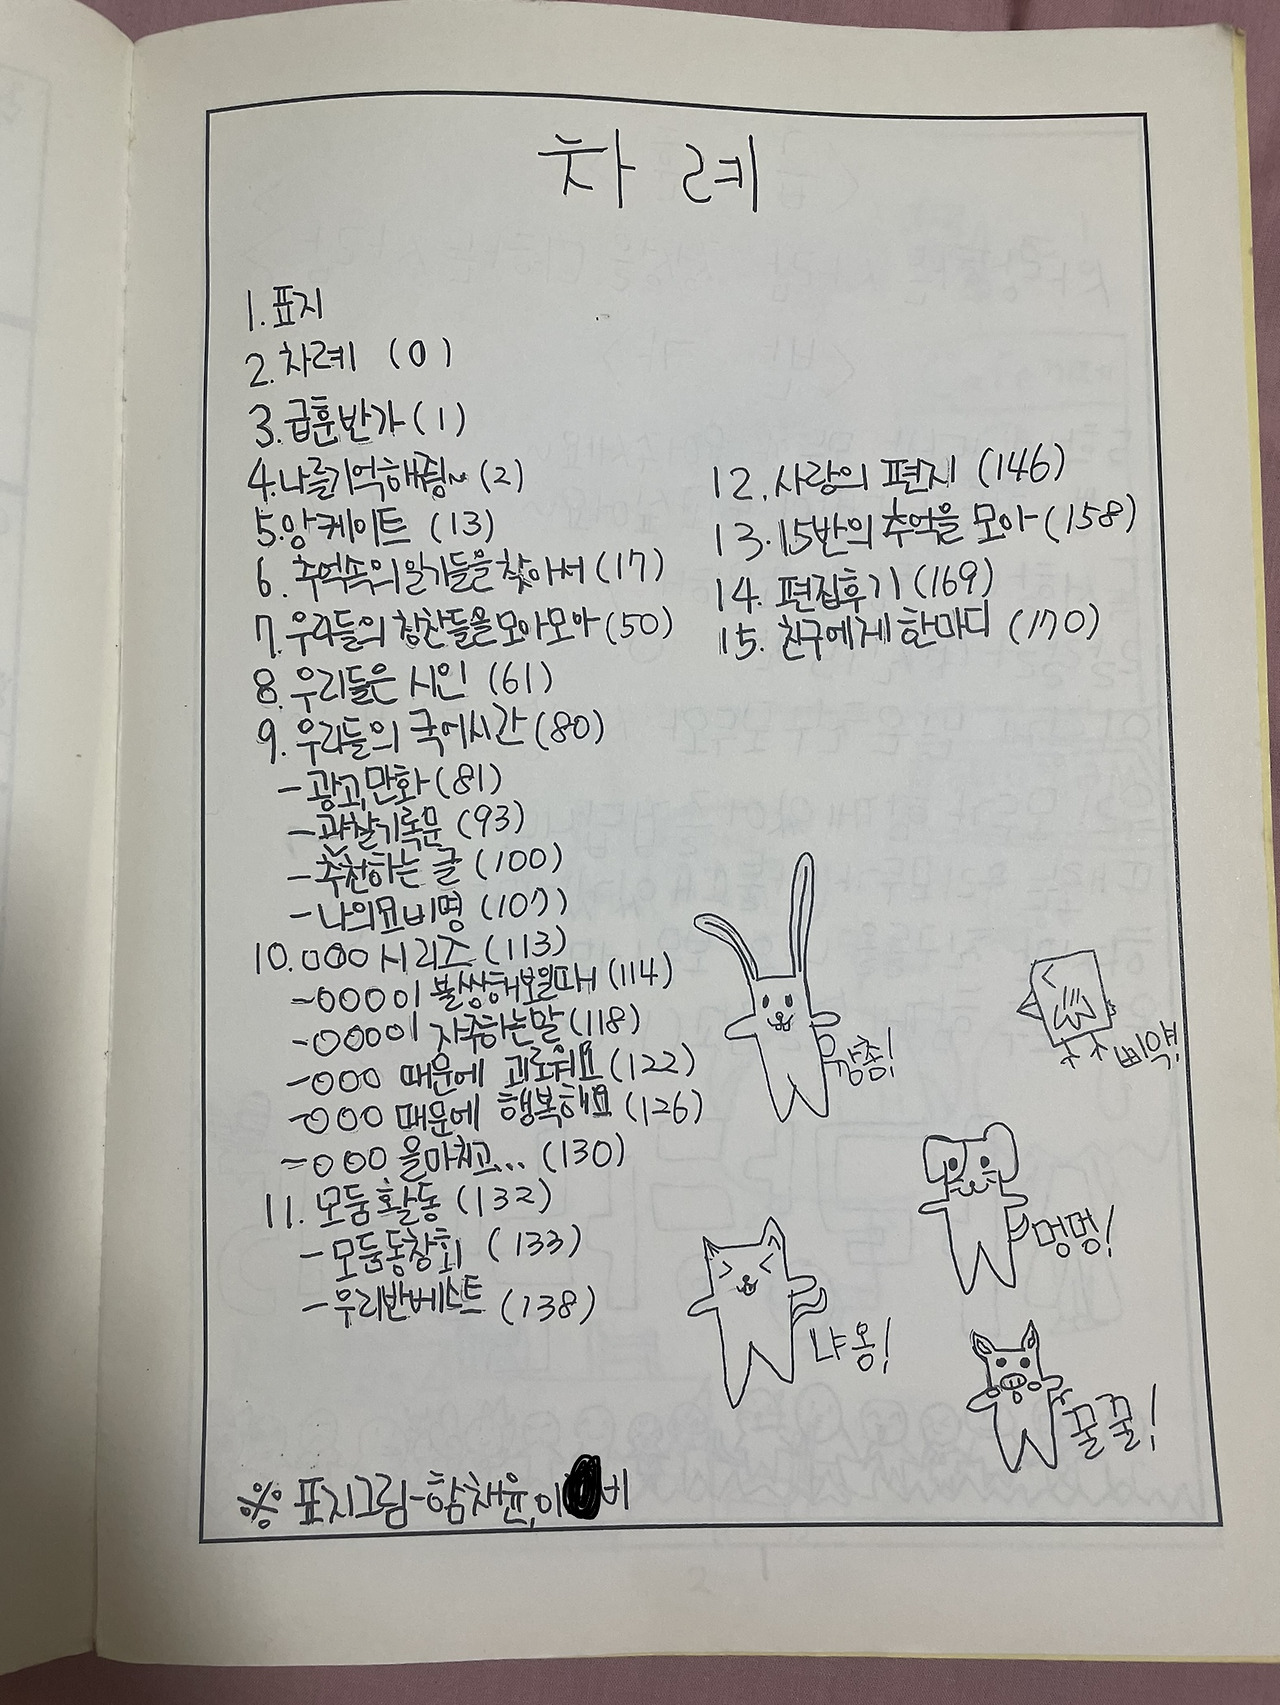 차례
1. 표지
2. 차례 (0)
3. 급훈반가 (1)
4. 나를기억해줭~ (2)
5. 앙케이트 (13)
6. 추억속의일기들을찾아서 (17)
7. 우리들의 칭찬들을모아모아 (50)
8. 우리들은 시인 (61)
9. 우리들의 국어시간 (80)
- 광고,만화 (81)
- 관찰기록문 (93)
- 추천하는 글 (100)
- 나의묘비명 (107)
10. ○○○ 시리즈 (113)
- ○○○이 불쌍해보일때 (114)
- ○○○이 자주하는말 (118)
- ○○○ 때문에 괴로워요 (122)
- ○○○ 때문에 행복해요 (126)
- ○○○ 을마치고... (130)
11. 모둠활동 (132)
- 모둠동창회 (133)
- 우리반베스트 (138)
12. 사랑의 편지 (146)
13. 15반의 추억을 모아 (158)
14. 편집후기 (169)
15. 친구에게 한마디 (170)
깡총!
삐약!
멍멍!
냐옹!
꿀꿀!
※ 표지그림-함채윤,이 비